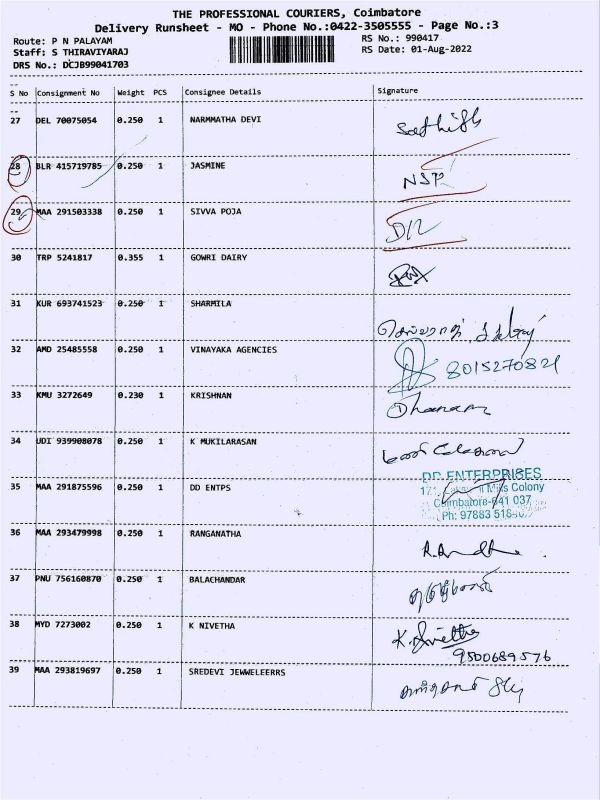 THE PROFESSIONAL COURIERS, Coimbatore
Delivery Runsheet - MO - Phone No.:0422-3505555 - Page No.:3
Route: P N PALAYAM RS No.: 990417
Staff: S THIRAVIYARAJ RS Date: 01-Aug-2022
DRS No.: DCJB99041703
S No Consignment No Weight PCS Consignee Details Signature
27 DEL 70075054 0.250 1 NARMMATHA DEVI Sathish
28 BLR 415719785 0.250 1 JASMINE NSP
29 MAA 291503338 0.250 1 SIVVA POJA D/L
30 TRP 5241817 0.355 1 GOWRI DAIRY
31 KUR 693741523 0.250 1 SHARMILA
32 AMD 25485558 0.250 1 VINAYAKA AGENCIES 8015270821
33 KMU 3272649 0.230 1 KRISHNAN Dhanam
34 UDI 939908078 0.250 1 K MUKILARASAN
DD ENTERPRISES
35 MAA 291875596 0.250 1 DD ENTPS Colony
Coimbatore-641 037
Ph: 97883
36 MAA 293479998 0.250 1 RANGANATHA
37 PNU 756160870 0.250 1 BALACHANDAR
38 MYD 7273002 0.250 1 K NIVETHA K. Nivetha
9500689576
39 MAA 293819697 0.250 1 SREDEVI JEWWELEERRS